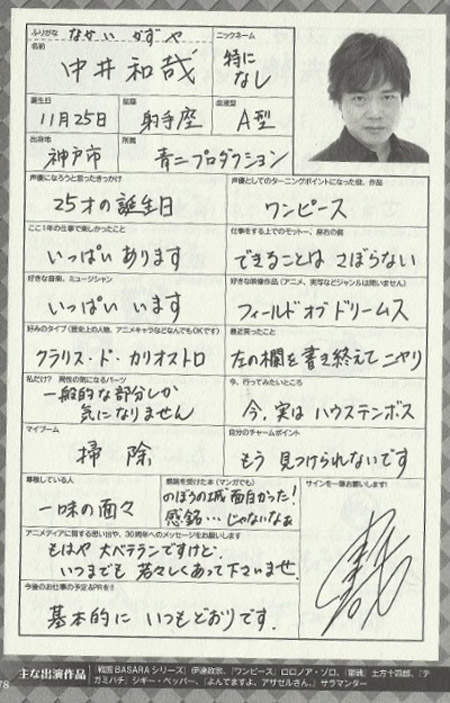 ふりがな なかい かずや
ニックネーム
名前
中井和哉
特に
なし
誕生日
星座
血液型
11月25日
射手座
A型
出身地
所属
神戸市
青二プロダクション
声優になろうと思ったきっかけ
25才の誕生日
声優としてのターニングポイントになった役、作品
ワンピース
ここ1年の仕事で楽しかったこと
いっぱいあります
仕事をする上でのモットー、座右の銘
できることは さぼらない
好きな音楽、ミュージシャン
いっぱい います
好きな映像作品(アニメ、実写などジャンルは問いません)
フィールド オブ ドリームス
好みのタイプ(歴史上の人物、アニメキャラなどなんでもOKです)
クラリス・ド・カリオストロ
最近笑ったこと
左の欄を書き終えて ニヤリ
私だけ? 異性の気になるパーツ
一般的な部分しか
気になりません
今、行ってみたいところ
今、実は ハウステンボス
マイブーム
掃除
自分のチャームポイント
もう 見つけられないです
尊敬している人
一味の面々
感銘を受けた本(マンガでも)
のぼうの城 面白かった!
感銘…じゃないなぁ
サインを一筆お願いします!
アニメディアに関する思い出や、30周年へのメッセージをお願いします
もはや 大ベテランですけど、
いつまでも 若々しくあって下さいませ。
今後のお仕事の予定&PRを!!
基本的に いつもどおりです。
主な出演作品
『戦国BASARAシリーズ』伊達政宗、『ワンピース』ロロノア・ゾロ、『銀魂』土方十四郎、『テ
ガミバチ』ジギー・ペッパー、『よんでますよ、アザゼルさん。』サラマンダー
78